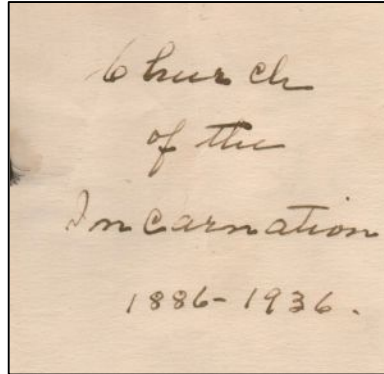 Church
of the
Incarnation
1886-1936.